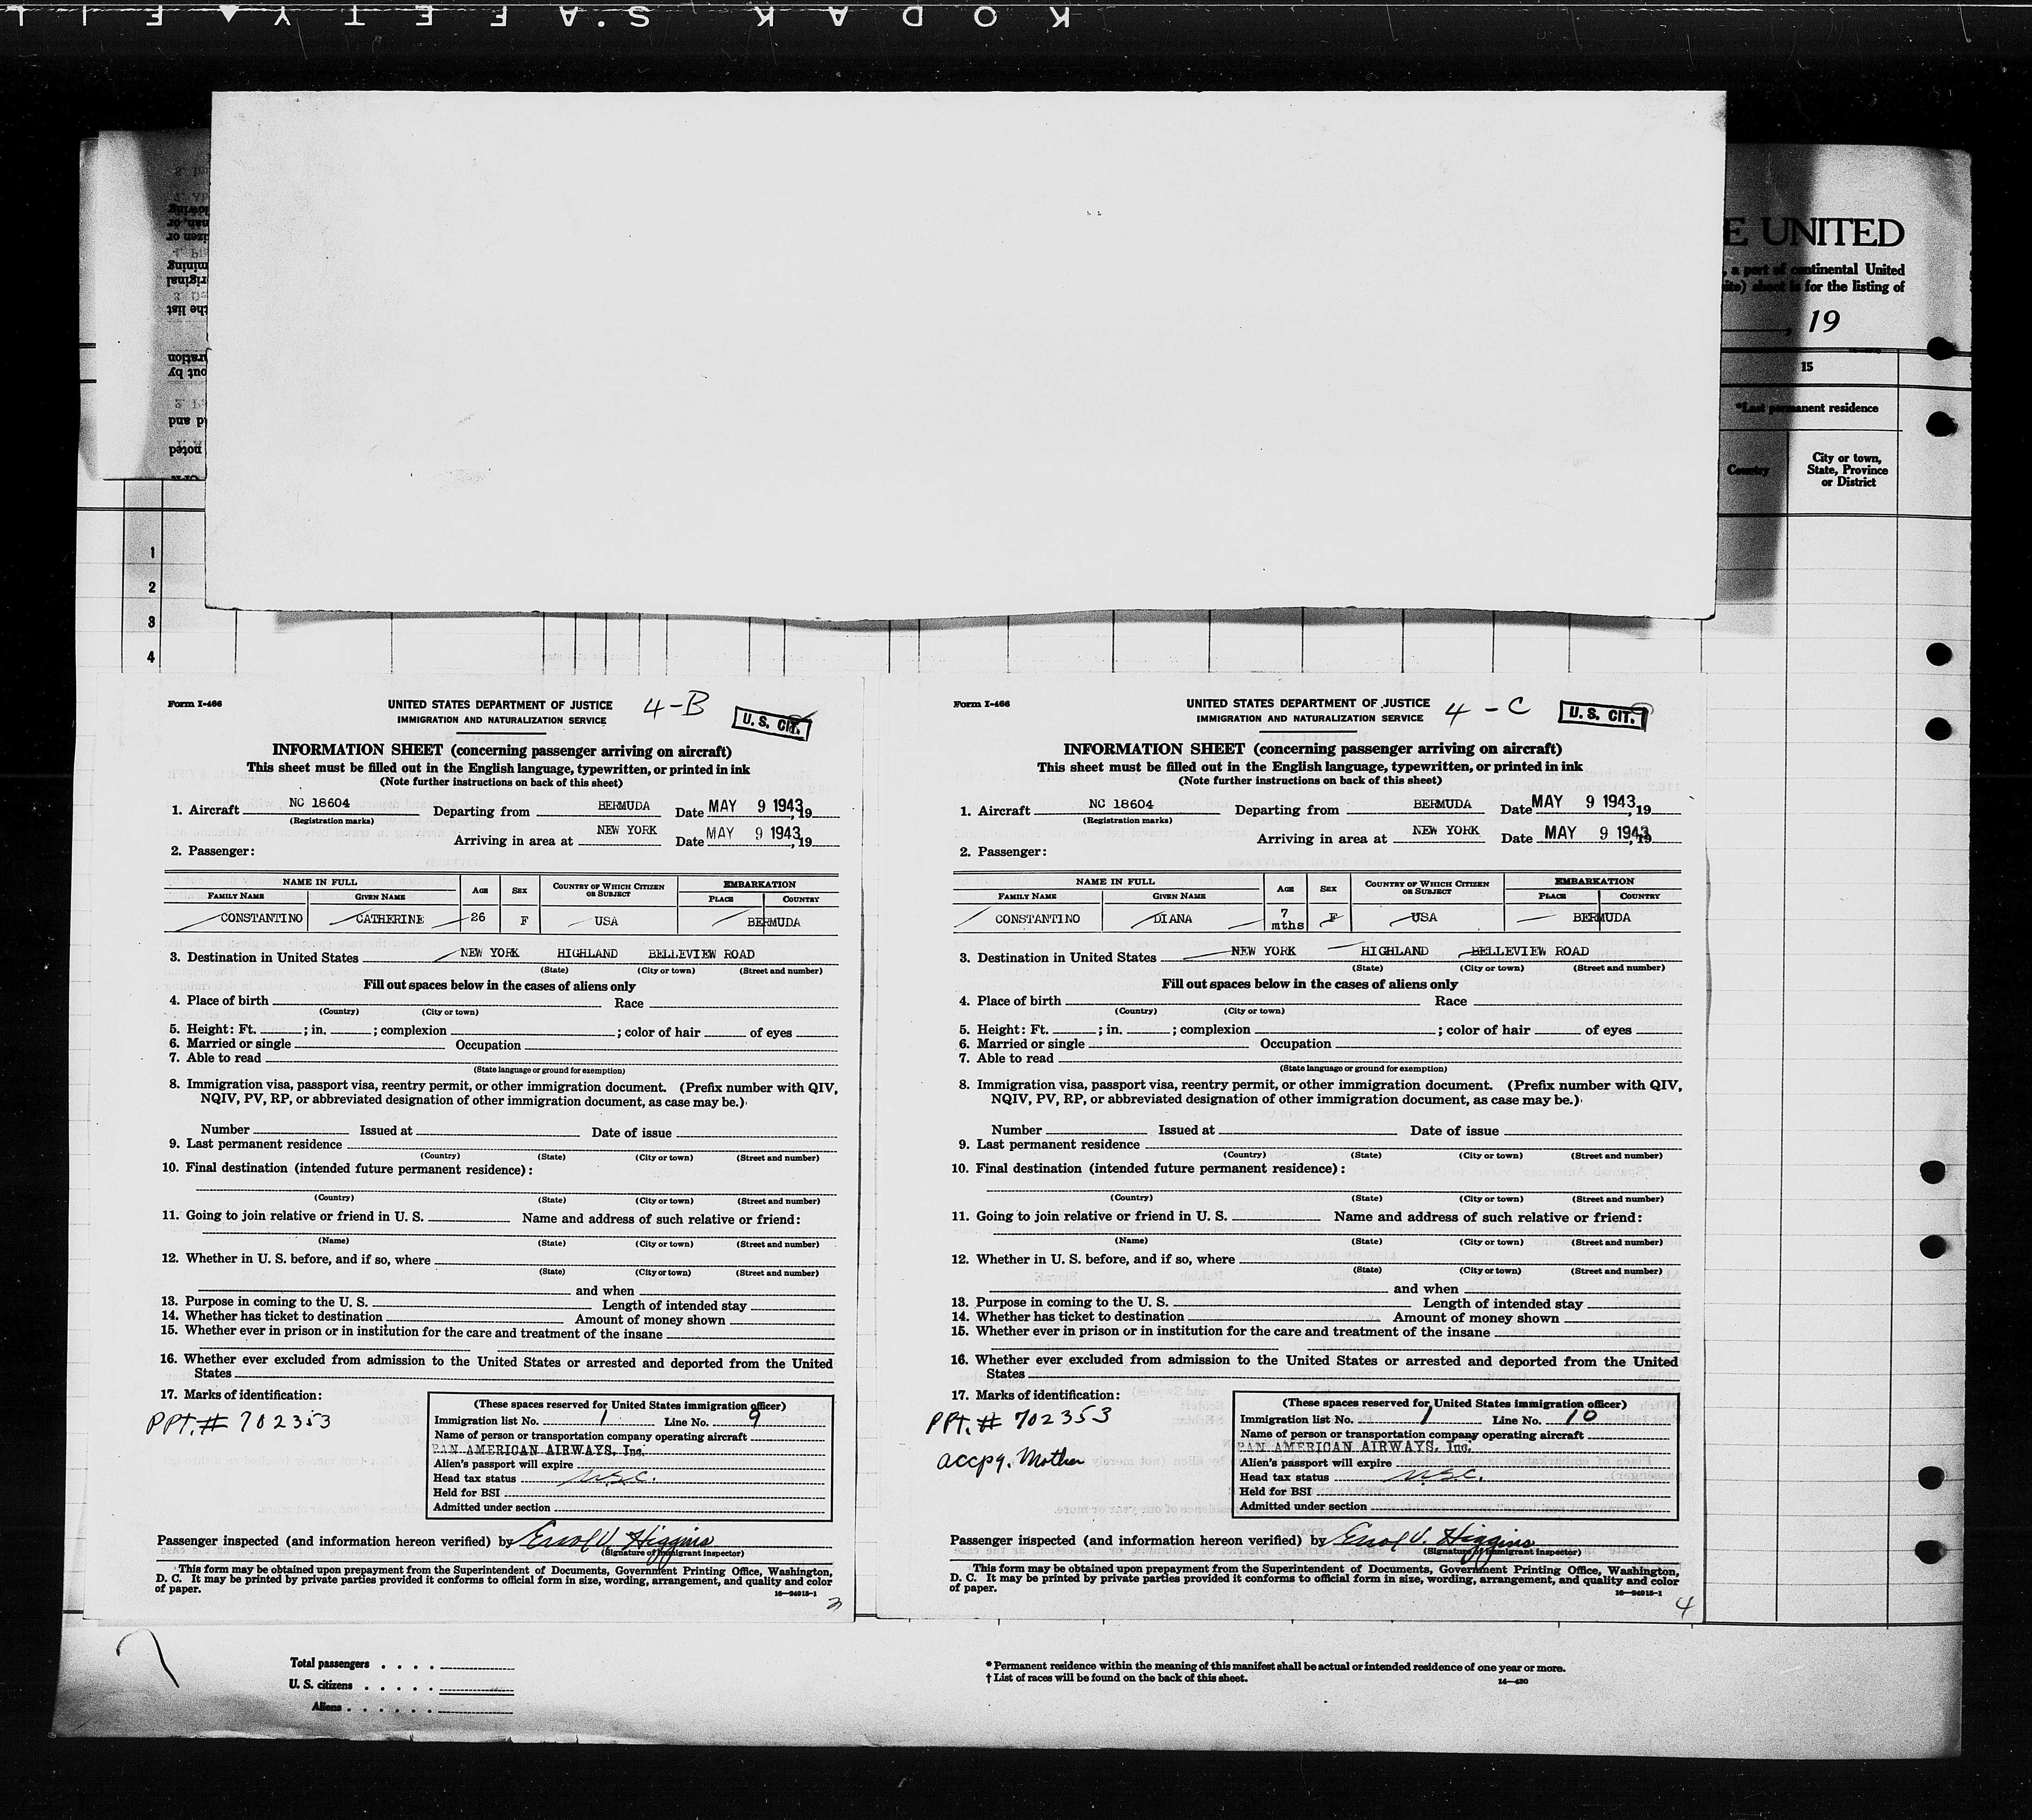 KODAK SAFETY FILM
E UNITED
, a part of continental United
ite) sheet is for the listing of
, 19
15
*Last permanent residence
Country
City or town,
State, Province
or District
1
2
3
4
Form I-466
UNITED STATES DEPARTMENT OF JUSTICE
4-B
U. S. CIT.
IMMIGRATION AND NATURALIZATION SERVICE
INFORMATION SHEET (concerning passenger arriving on aircraft)
This sheet must be filled out in the English language, typewritten, or printed in ink
(Note further instructions on back of this sheet)
1. Aircraft NC 18604 Departing from BERMUDA Date MAY 9 1943, 19
(Registration marks)
Arriving in area at NEW YORK Date MAY 9 1943, 19
2. Passenger:
NAME IN FULL AGE SEX COUNTRY OF WHICH CITIZEN OR SUBJECT EMBARKATION
FAMILY NAME GIVEN NAME PLACE COUNTRY
CONSTANTINO CATHERINE 26 F USA BERMUDA
3. Destination in United States NEW YORK HIGHLAND BELLEVIEW ROAD
(State) (City or town) (Street and number)
Fill out spaces below in the cases of aliens only
4. Place of birth Race
(Country) (City or town)
5. Height: Ft. ; in. ; complexion ; color of hair of eyes
6. Married or single Occupation
7. Able to read
(State language or ground for exemption)
8. Immigration visa, passport visa, reentry permit, or other immigration document. (Prefix number with QIV,
NQIV, PV, RP, or abbreviated designation of other immigration document, as case may be.)
Number Issued at Date of issue
9. Last permanent residence
(Country) (State) (City or town) (Street and number)
10. Final destination (intended future permanent residence):
(Country) (State) (City or town) (Street and number)
11. Going to join relative or friend in U. S. Name and address of such relative or friend:
(Name) (State) (City or town) (Street and number)
12. Whether in U. S. before, and if so, where
(State) (City or town) (Street and number)
and when
13. Purpose in coming to the U. S. Length of intended stay
14. Whether has ticket to destination Amount of money shown
15. Whether ever in prison or in institution for the care and treatment of the insane
16. Whether ever excluded from admission to the United States or arrested and deported from the United
States
17. Marks of identification:
PPt. # 702353
(These spaces reserved for United States immigration officer)
Immigration list No. 1 Line No. 9
Name of person or transportation company operating aircraft
PAN AMERICAN AIRWAYS, Inc.
Alien's passport will expire
Head tax status U.S.C.
Held for BSI
Admitted under section
Passenger inspected (and information hereon verified) by Errol V. Higgins
(Signature of immigrant inspector)
This form may be obtained upon prepayment from the Superintendent of Documents, Government Printing Office, Washington,
D. C. It may be printed by private parties provided it conforms to official form in size, wording, arrangement, and quality and color
of paper.
16—24915-1
Form I-466
UNITED STATES DEPARTMENT OF JUSTICE
4-C
U. S. CIT.
IMMIGRATION AND NATURALIZATION SERVICE
INFORMATION SHEET (concerning passenger arriving on aircraft)
This sheet must be filled out in the English language, typewritten, or printed in ink
(Note further instructions on back of this sheet)
1. Aircraft NC 18604 Departing from BERMUDA Date MAY 9 1943, 19
(Registration marks)
Arriving in area at NEW YORK Date MAY 9 1943, 19
2. Passenger:
NAME IN FULL AGE SEX COUNTRY OF WHICH CITIZEN OR SUBJECT EMBARKATION
FAMILY NAME GIVEN NAME PLACE COUNTRY
CONSTANTINO DIANA 7 mths F USA BERMUDA
3. Destination in United States NEW YORK HIGHLAND BELLEVIEW ROAD
(State) (City or town) (Street and number)
Fill out spaces below in the cases of aliens only
4. Place of birth Race
(Country) (City or town)
5. Height: Ft. ; in. ; complexion ; color of hair of eyes
6. Married or single Occupation
7. Able to read
(State language or ground for exemption)
8. Immigration visa, passport visa, reentry permit, or other immigration document. (Prefix number with QIV,
NQIV, PV, RP, or abbreviated designation of other immigration document, as case may be.)
Number Issued at Date of issue
9. Last permanent residence
(Country) (State) (City or town) (Street and number)
10. Final destination (intended future permanent residence):
(Country) (State) (City or town) (Street and number)
11. Going to join relative or friend in U. S. Name and address of such relative or friend:
(Name) (State) (City or town) (Street and number)
12. Whether in U. S. before, and if so, where
(State) (City or town) (Street and number)
and when
13. Purpose in coming to the U. S. Length of intended stay
14. Whether has ticket to destination Amount of money shown
15. Whether ever in prison or in institution for the care and treatment of the insane
16. Whether ever excluded from admission to the United States or arrested and deported from the United
States
17. Marks of identification:
PPt. # 702353
accpg. Mother
(These spaces reserved for United States immigration officer)
Immigration list No. 1 Line No. 10
Name of person or transportation company operating aircraft
PAN AMERICAN AIRWAYS, Inc.
Alien's passport will expire
Head tax status U.S.C.
Held for BSI
Admitted under section
Passenger inspected (and information hereon verified) by Errol V. Higgins
(Signature of immigrant inspector)
This form may be obtained upon prepayment from the Superintendent of Documents, Government Printing Office, Washington,
D. C. It may be printed by private parties provided it conforms to official form in size, wording, arrangement, and quality and color
of paper.
16—24915-1
4
Total passengers
U. S. citizens
Aliens
* Permanent residence within the meaning of this manifest shall be actual or intended residence of one year or more.
† List of races will be found on the back of this sheet.
14—430